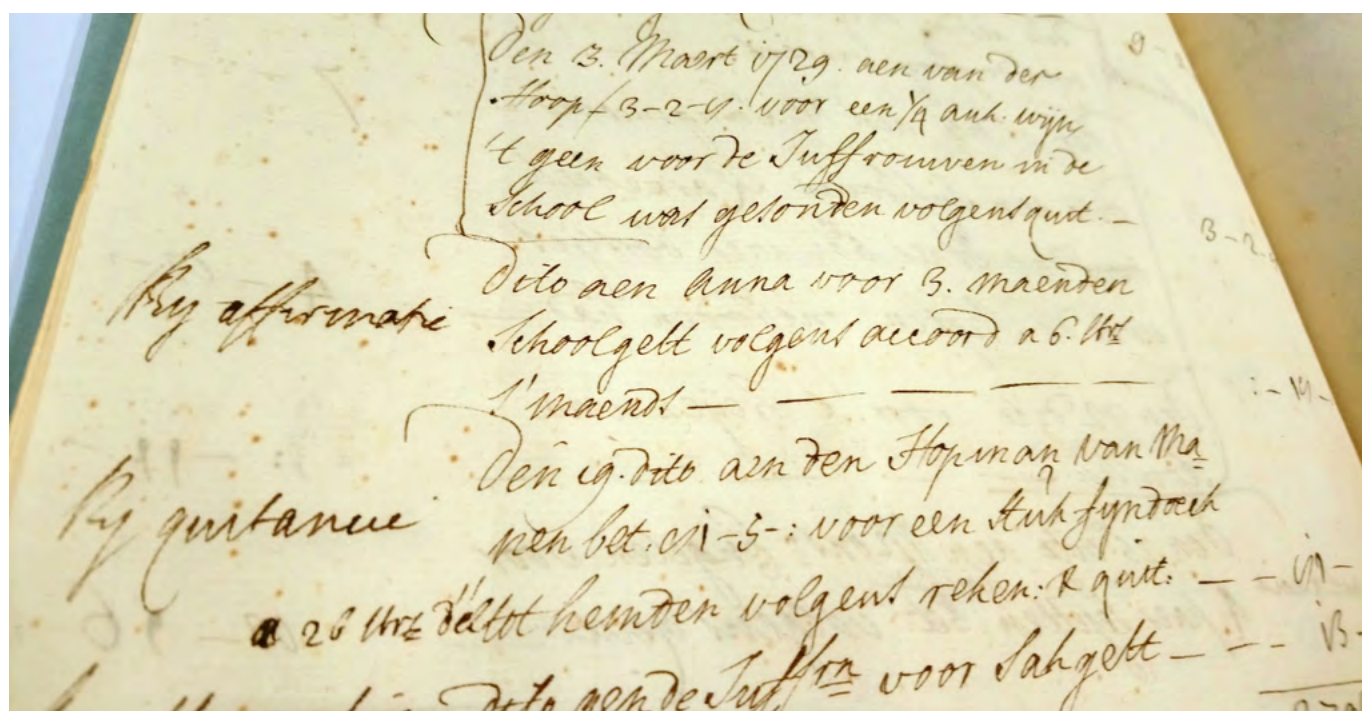 9-
Den 3. Maert 1729. aen van der
Hoop f 3-2-4. voor een 1/4 ank. wijn
't geen voor de Juffrouwen in de
School was gesonden volgens quit. —
3-2
By affirmatie
Dito aen Anna voor 3. maenden
Schoolgelt volgens accoord a 6. stv:
s' maends — — — — —
:-
By quitancie
Den 19. dito aen den Hopman van Ma
nen bet. -5-: voor een stuk fyndoek
a 26 stv: d'el tot hemden volgens reken: & quit: — —
dito aen de Juffrn voor Sakgelt — — —